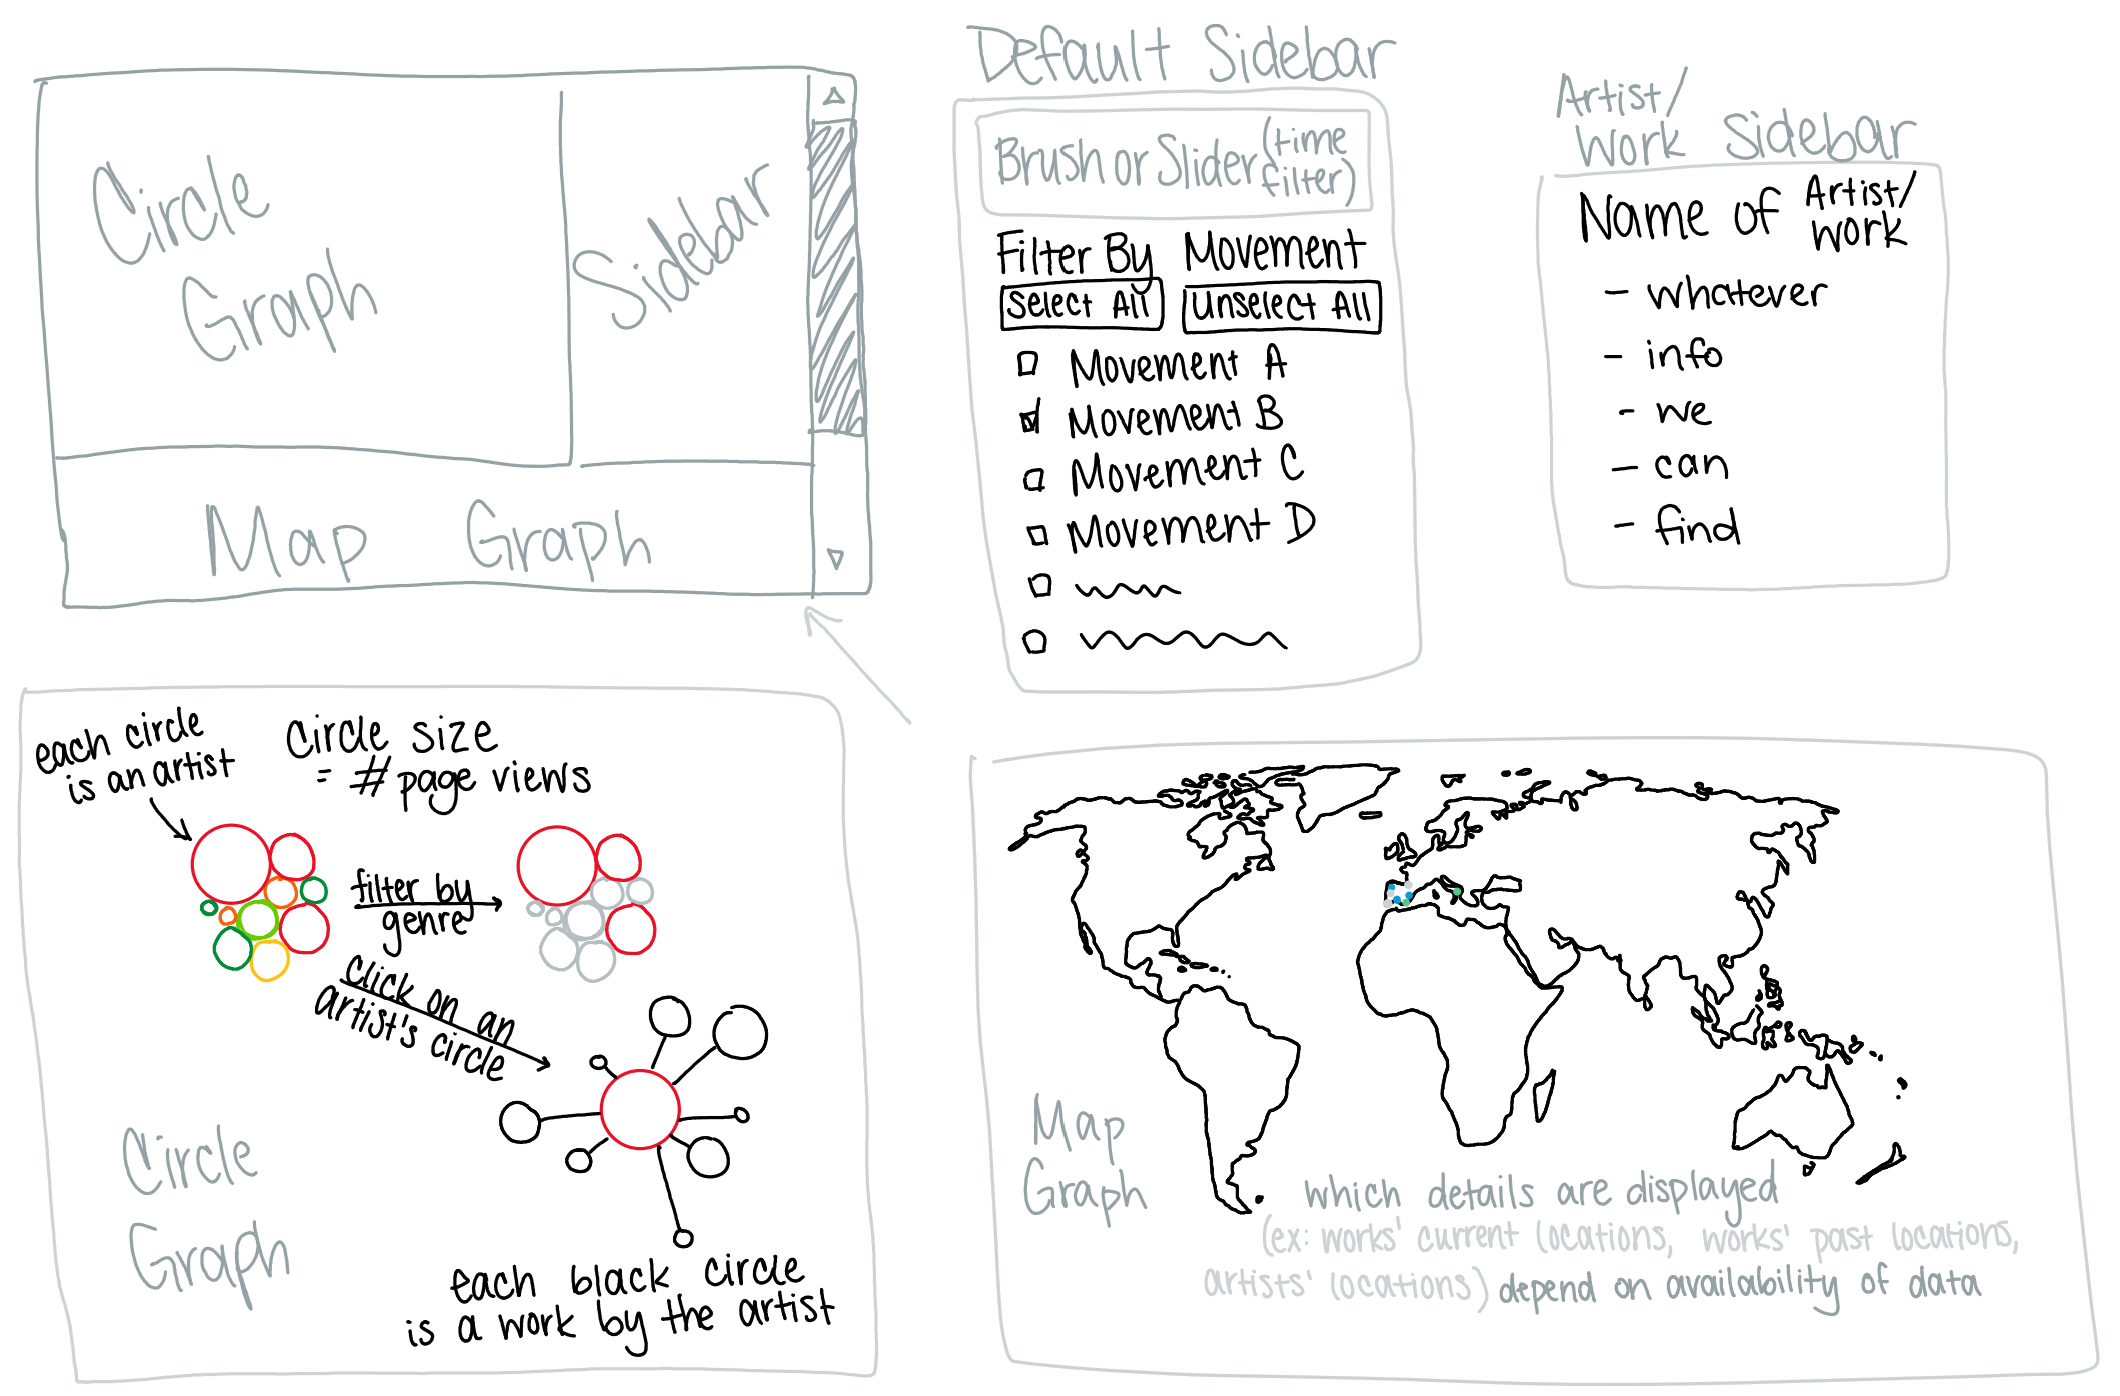 Circle
Graph
Sidebar
Map Graph
Default Sidebar
Brush or Slider (time
filter)
Filter By Movement
Select All Unselect All
Movement A
Movement B
Movement C
Movement D
Artist/
Work Sidebar
Name of Artist/
work
- whatever
- info
- we
- can
- find
each circle
is an artist
Circle size
= # page views
filter by
genre
click on an
artist's circle
Circle
Graph
each black circle
is a work by the artist
Map
Graph
which details are displayed
(ex: works' current locations, works' past locations,
artists' locations) depend on availability of data